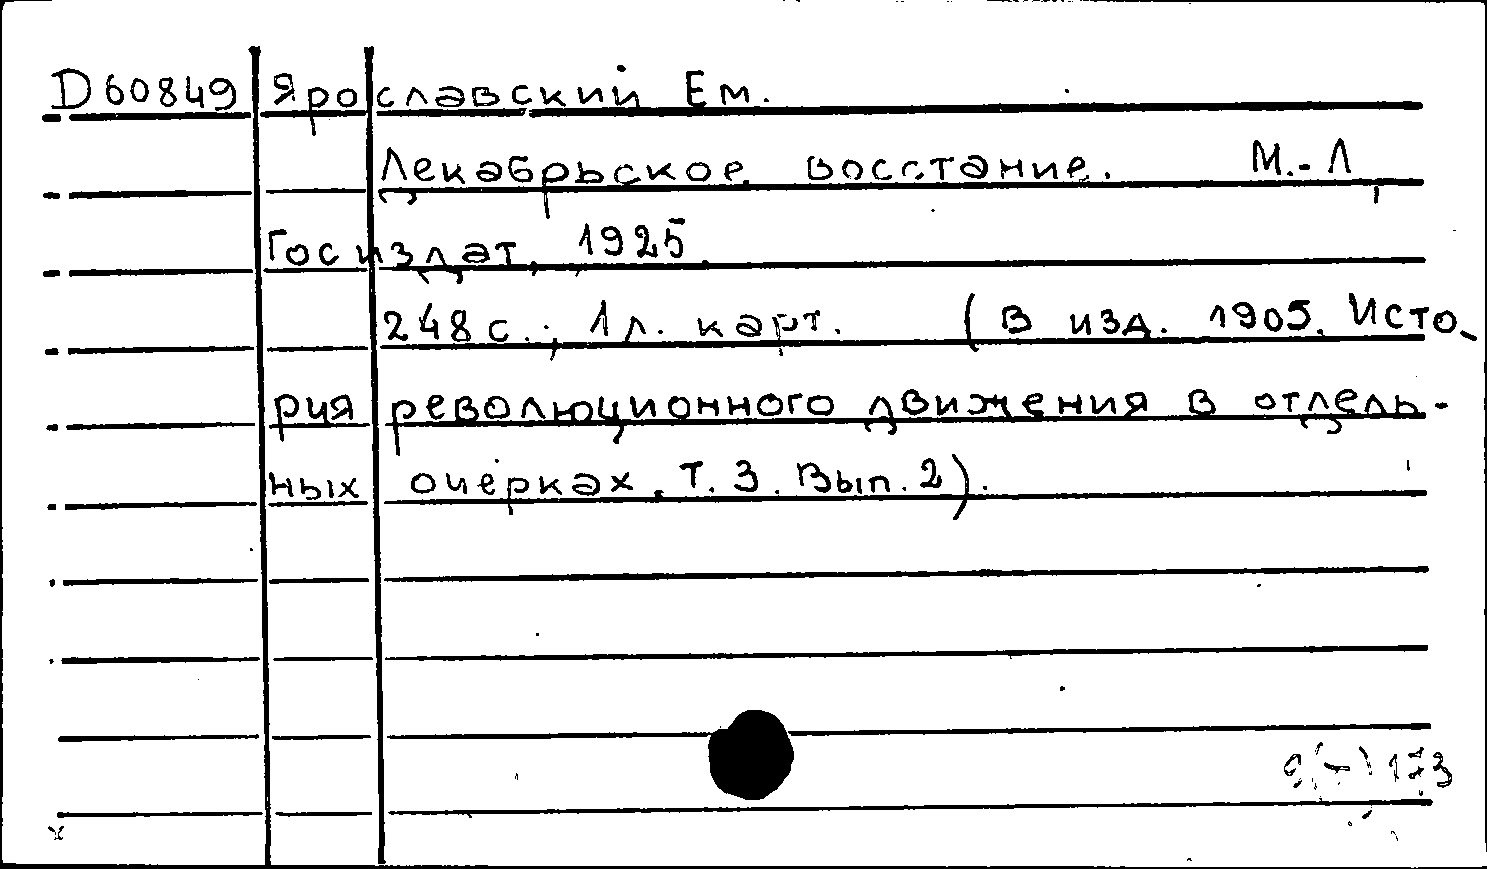 D60849 Ярославский Ем.
Декабрьское восстание. М.-Л,
Госиздат, 1925.
248 с.; 1 л. карт. (В изд. 1905. Исто-
рия революционного движения в отдель-
ных очерках. Т. 3. Вып. 2).